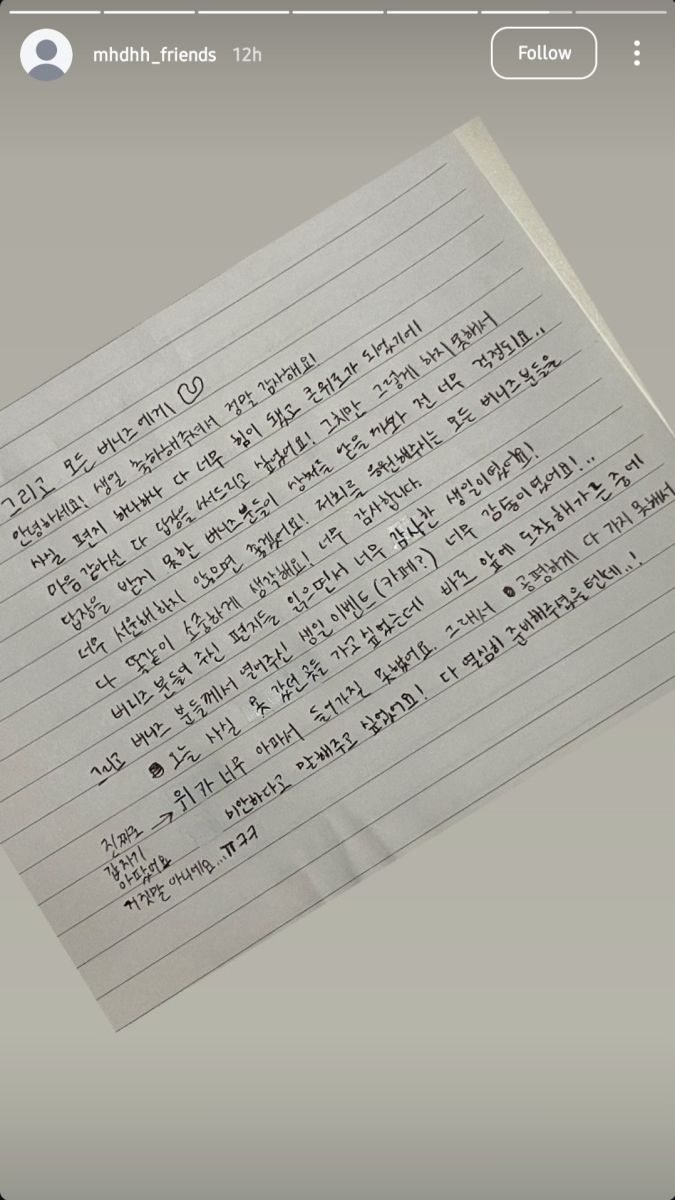 mhdhh_friends 12h
Follow
그리고 모든 버니즈에게
안녕하세요! 생일 축하해주셔서 정말 감사해요!
사실 편지 하나하나 다 너무 힘이 됐고 큰위로가 되었기에
마음같아선 다 답장을 써드리고 싶었어요! 그치만 그렇게 하지 못해서
답장을 받지 못한 버니즈분들이 상처를 받을까봐 전 너무 걱정되요..
너무 서운해하지 않으면 좋겠어요! 저희를 응원해주시는 모든 버니즈분들을
다 똑같이 소중하게 생각해요! 너무 감사합니다.
버니즈분들이 주신 편지들 읽으면서 너무 감사한 생일이었어요!
그리고 버니즈 분들께서 열어주신 생일이벤트(카페?) 너무 감동이었어요!..
오늘 사실 못 갔던 곳들 가고싶었는데 바로 앞에 도착해가는 중에
위가 너무 아파서 들어가질 못했어요. 그래서 공평하게 다 가지 못해서
미안하다고 말해주고 싶었어요! 다 열심히 준비해주셨을텐데..!
진짜로 →
갑자기
아팠어요
거짓말 아니에요...ㅠㅋㅋ